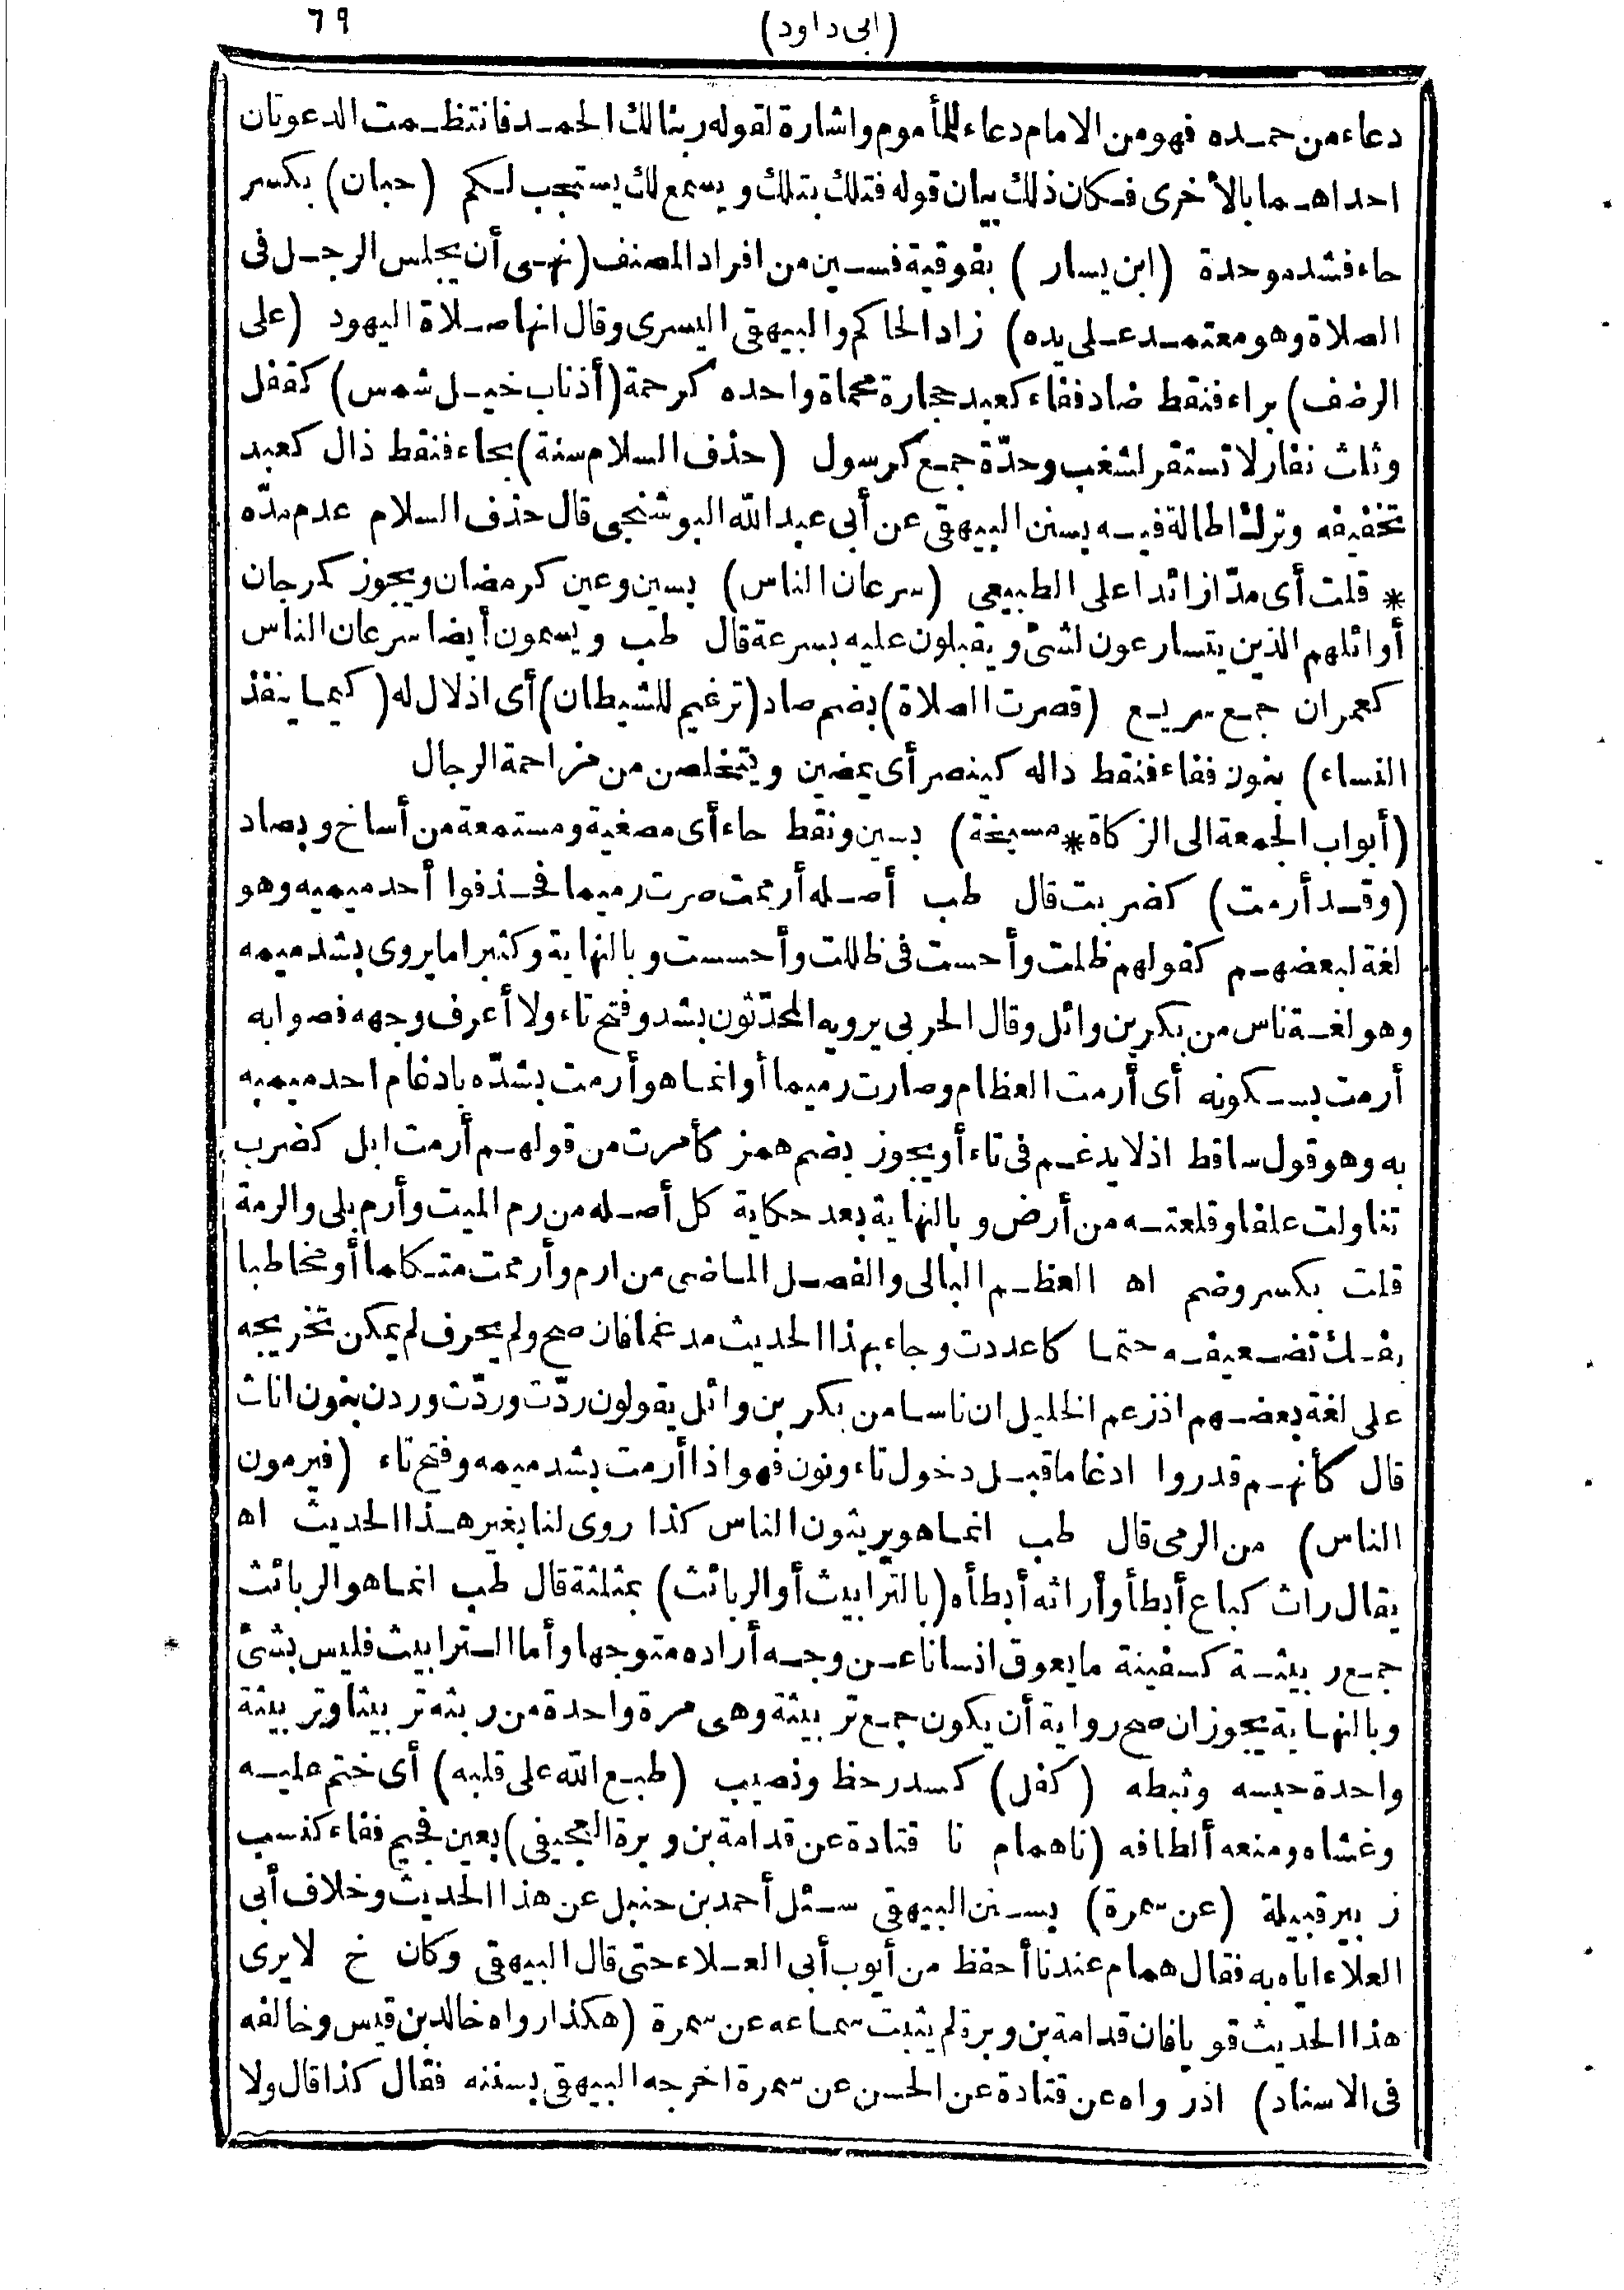 (ابى داود) ٦٩
دعاء من حمده فهو من الامام دعاء للمأموم واشارة لقوله ربنا لك الحمد فانتظمت الدعوتان
احداهما بالأخرى فكان ذلك بيان قوله فتلك بتلك ويسمع لك يستجب لكم (حبان) بكسر
حاء فشد موحدة (ابن يسار) بفوقية فسين من افراد المصنف (نهى أن يجلس الرجل فى
الصلاة وهو معتمد على يده) زاد الحاكم والبيهقى اليسرى وقال انها صلاة اليهود (على
الرضف) براء فنقط ضاد ففاء كعبد حجارة محماة واحده كرحمة (أذناب خيل شمس) كقفل
وثلث نفار لا تستقر لشغب وحدّة جمع كرسول (حذف السلام سنة) بحاء فنقط ذال كعبد
تخفيفه وترك اطالة فيه بسنن البيهقى عن أبى عبد الله البوشنجى قال حذف السلام عدم مدّه
* قلت أى مدّا زائدا على الطبيعى (سرعان الناس) بسين وعين كرمضان ويجوز كمرجان
أوائلهم الذين يتسارعون لشئ ويقبلون عليه بسرعة قال طب ويسمون أيضا سرعان الناس
كعمران جمع سريع (قصرت الصلاة) بضم صاد (ترغيم للشيطان) أى اذلال له (كيما ينفذ
النساء) بنون ففاء فنقط داله كينصر أى يمضين ويتخلصن من مزاحمة الرجال
(أبواب الجمعة الى الزكاة * مسيخة) بسين ونقط حاء أى مصغية ومستمعة من أساخ وبصاد
(وقد أرمت) كضربت قال طب أصله أرممت صرت رميما فحذفوا أحد ميميه وهو
لغة لبعضهم كقولهم ظلت وأحست فى ظللت وأحسست وبالنهاية وكثيرا ما يروى بشد ميمه
وهو لغة ناس من بكر بن وائل وقال الحربى يرويه المحدّثون بشد وفتح تاء ولا أعرف وجهه فصوابه
أرمت بسكونه أى أرمت العظام وصارت رميما أو انما هو أرمت بشدّه بادغام احد ميميه
به وهو قول ساقط اذ لا يدغم فى تاء أو يجوز بضم همز كأمرت من قولهم أرمت ابل كضرب
تناولت علفا وقلعته من أرض وبالنهاية بعد حكاية كل أصله من رم الميت وأرم بلى والرمة
قلت بكسر وضم اه العظم البالى والفصل الماضى من ارم وأرممت متكلما أو مخاطبا
بفك تضعيفه حتما كاعددت وجاء بهذا الحديث مدغما فان صح ولم يحرف لم يمكن تخريجه
على لغة بعضهم اذ زعم الخليل ان ناسا من بكر بن وائل يقولون ردّت وردّت وردن بنون اناث
قال كأنهم قدروا ادغاما قبل دخول تاء ونون فهو اذا أرمت بشد ميمه وفتح تاء (فيرمون
الناس) من الرمى قال طب انما هو يربثون الناس كذا روى لنا بغير هذا الحديث اه
يقال راث كباع أبطأ وأراثه أبطأه (بالترابيث أو الربائث) بمثلثة قال طب انما هو الربائث
جمع ربيثة كسفينة ما يعوق انسانا عن وجه أراده متوجها وأما الترابيث فليس بشئ
وبالنهاية يجوز ان صح رواية أن يكون جمع تربيثة وهى مرة واحدة من ربثه تربيثا وتربيثة
واحدة حبسه وثبطه (كفل) كسدر حظ ونصيب (طبع الله على قلبه) أى ختم عليه
وغشاه ومنعه ألطافه (نا همام نا قتادة عن قدامة بن وبرة العجيفى) بعين فجيم ففاء كنسب
زبير قبيلة (عن سمرة) بسنن البيهقى سئل أحمد بن حنبل عن هذا الحديث وخلاف أبى
العلاء اياه به فقال همام عندنا أحفظ من أيوب أبى العلاء حتى قال البيهقى وكان خ لا يرى
هذا الحديث قويا فان قدامة بن وبرة لم يثبت سماعه عن سمرة (هكذا رواه خالد بن قيس وخالفه
فى الاسناد) اذ رواه عن قتادة عن الحسن عن سمرة اخرجه البيهقى بسننه فقال كذا قال ولا